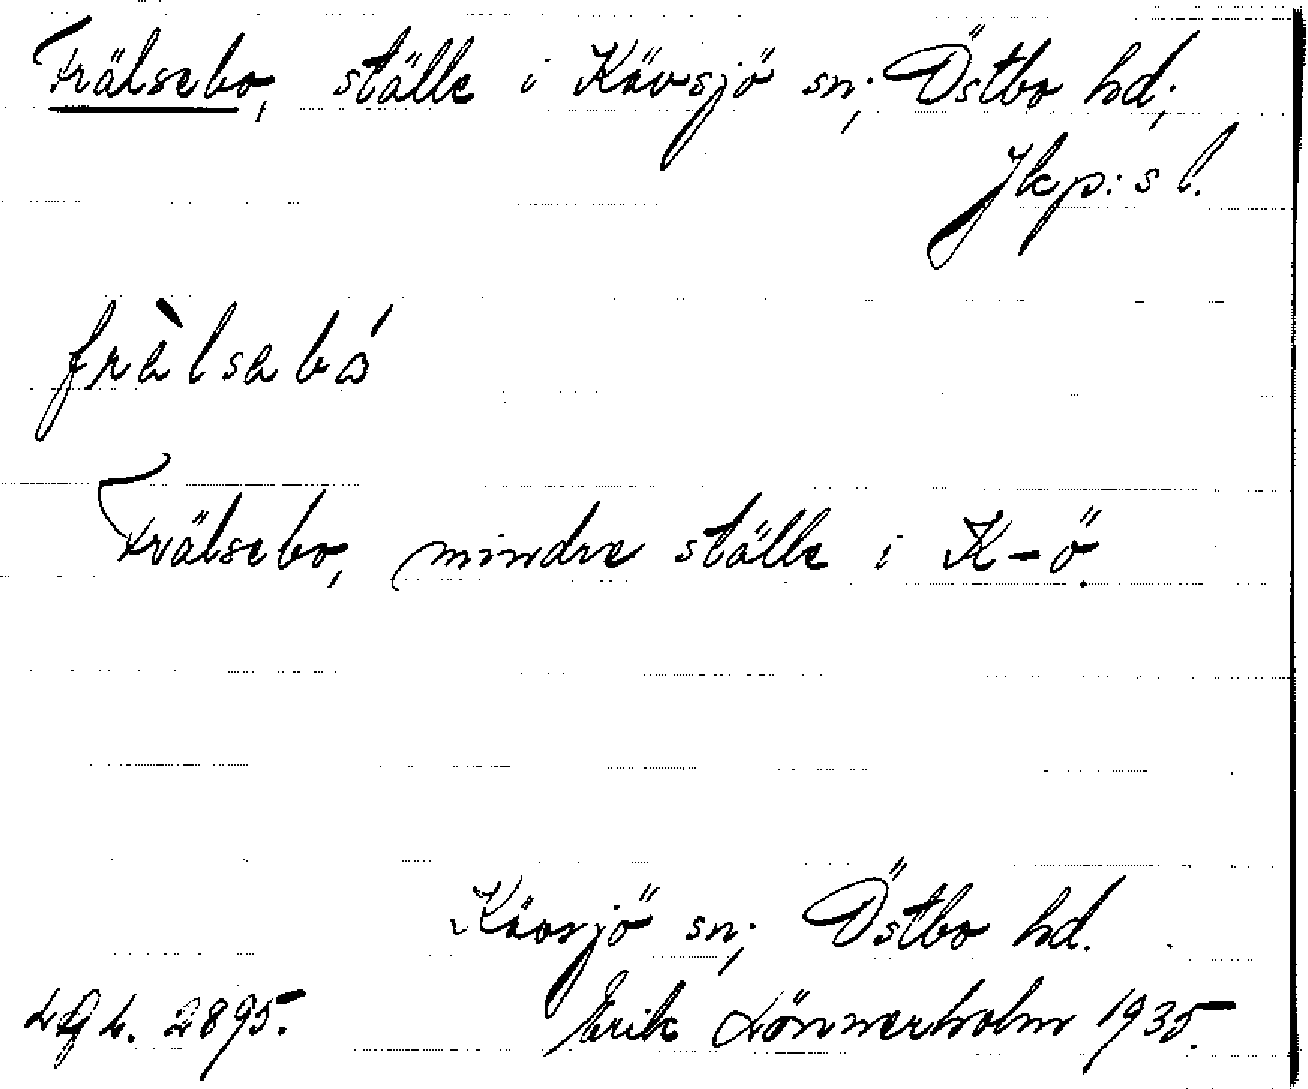 Frälsebo, ställe i Kävsjö sn; Östbo hd;
Jkp:s l.
frälsebó
Frälsebo, mindre ställe i K-ö.
Kävsjö sn; Östbo hd.
2895. Erik Lönnerholm 1935.